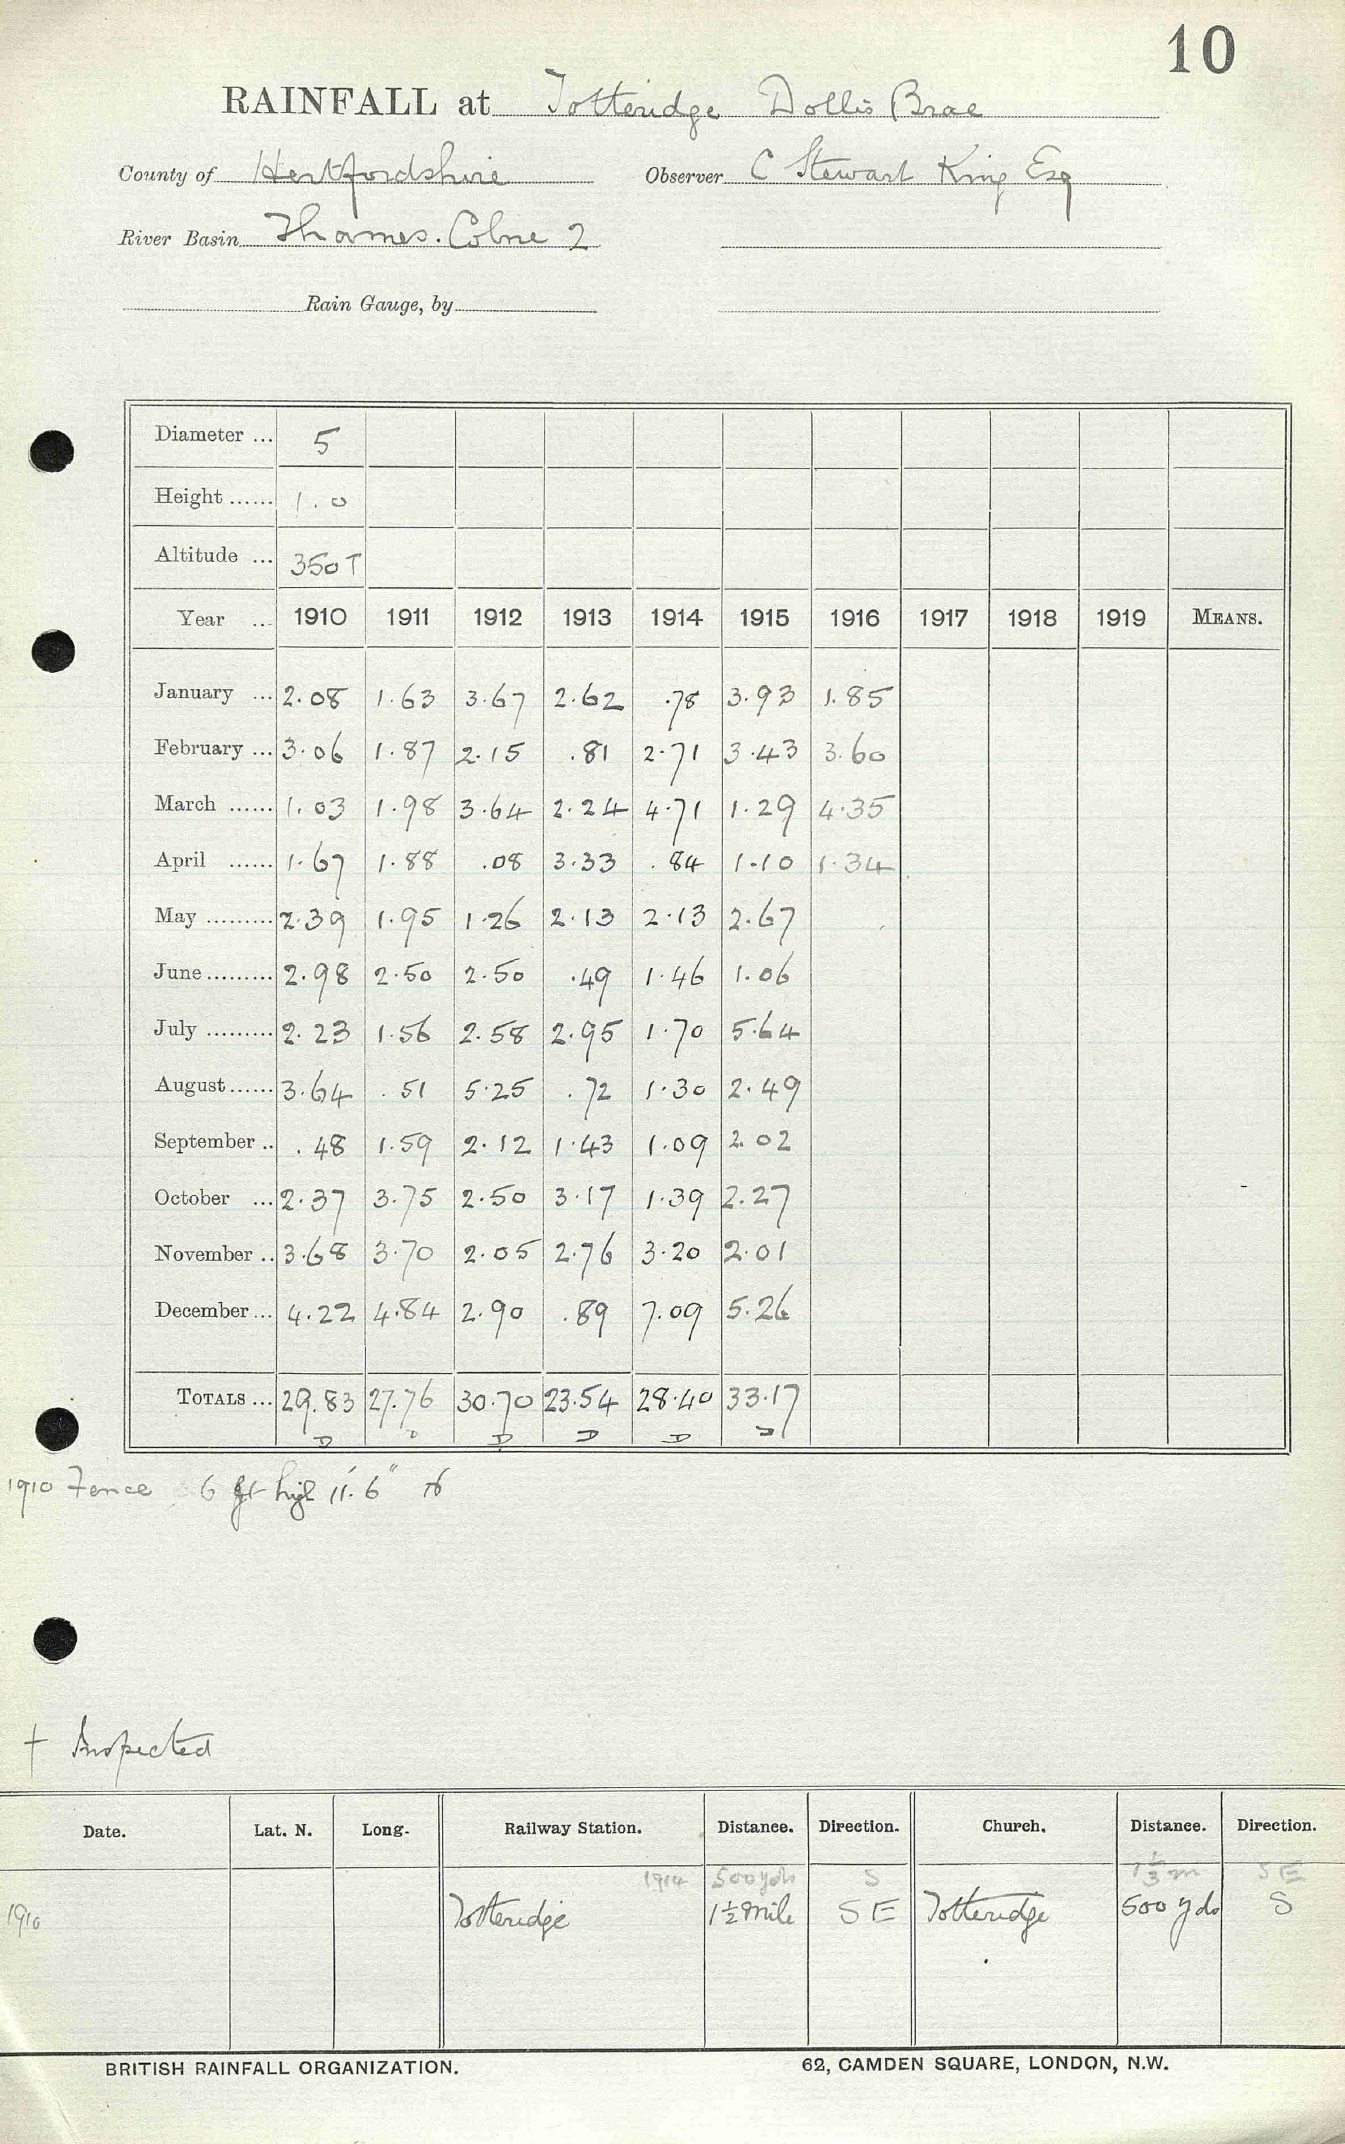 10
RAINFALL at Totteridge Dollis Brae
County of Hertfordshire Observer C Stewart King Esq
River Basin Thames. Colne 2
Rain Gauge, by
Diameter ... 5
Height ...... 1.0
Altitude ... 350 T
Year ... 1910 1911 1912 1913 1914 1915 1916 1917 1918 1919 MEANS.
January ... 2.08 1.63 3.67 2.62 .78 3.93 1.85
February ... 3.06 1.87 2.15 .81 2.71 3.43 3.60
March ...... 1.03 1.98 3.64 2.24 4.71 1.29 4.35
April ...... 1.67 1.88 .08 3.33 .84 1.10 1.34
May ......... 2.39 1.95 1.26 2.13 2.13 2.67
June ......... 2.98 2.50 2.50 .49 1.46 1.06
July ......... 2.23 1.56 2.58 2.95 1.70 5.64
August ...... 3.64 .51 5.25 .72 1.30 2.49
September .. .48 1.59 2.12 1.43 1.09 2.02
October ... 2.37 3.75 2.50 3.17 1.39 2.27
November .. 3.68 3.70 2.05 2.76 3.20 2.01
December ... 4.22 4.84 2.90 .89 7.09 5.26
TOTALS ... 29.83 27.76 30.70 23.54 28.40 33.17
D D D D D D
1910 Fence 6 ft high 11' 6"
† Inspected
Date. Lat. N. Long. Railway Station. Distance. Direction. Church. Distance. Direction.
1914 500 yds S 1 1/3 m SE
1910 Totteridge 1½ mile SE Totteridge 500 yds S
BRITISH RAINFALL ORGANIZATION. 62, CAMDEN SQUARE, LONDON, N.W.